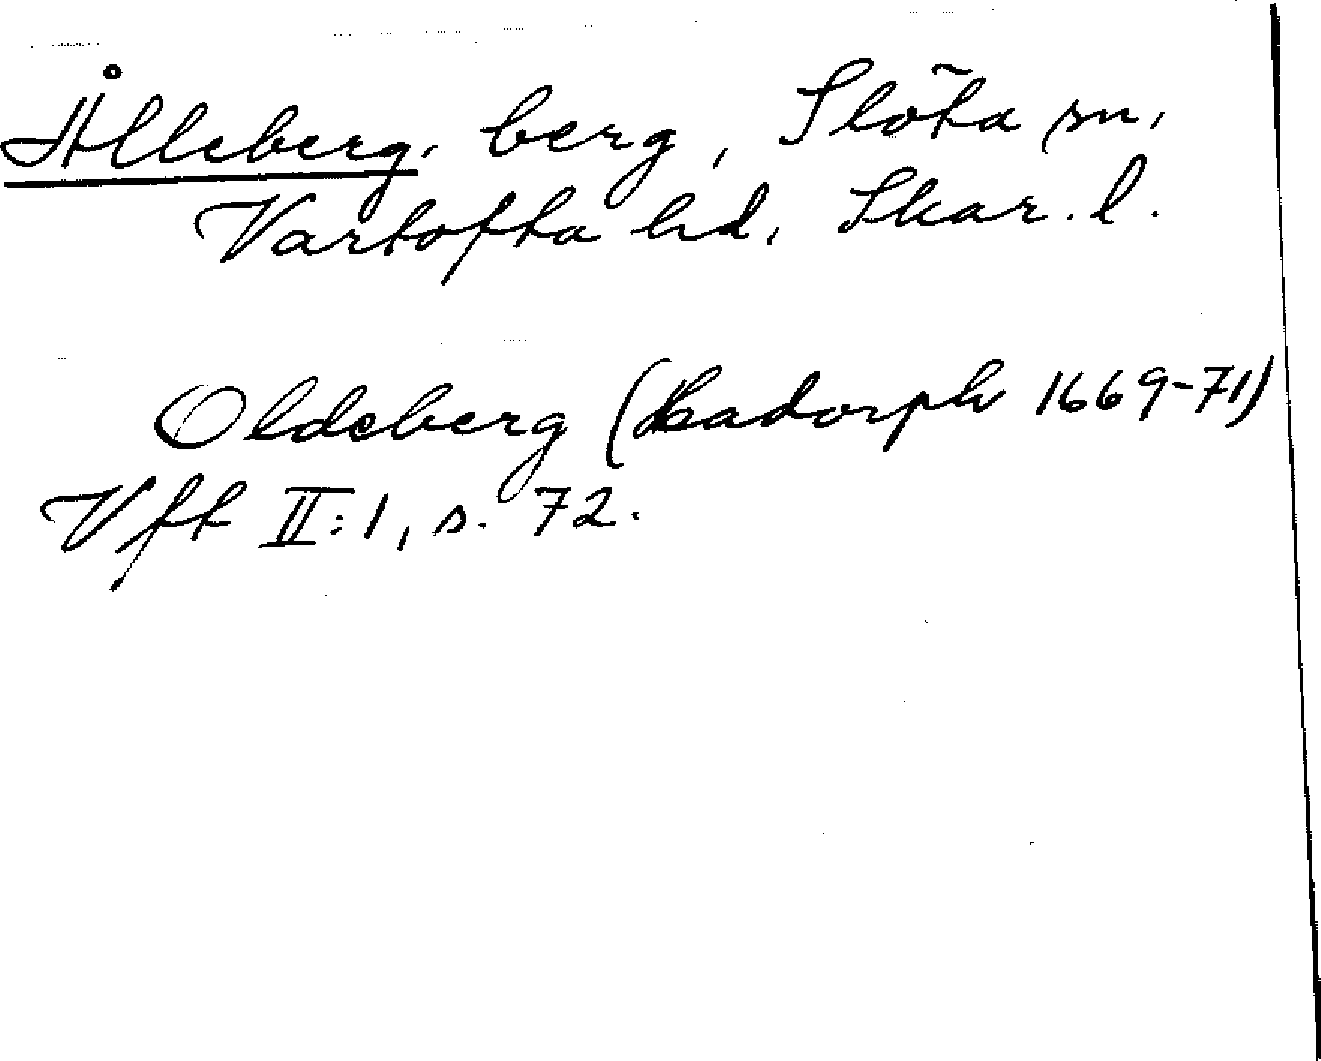 Ålleberg. berg, Slöta sn,
Vartofta hd, Skar. l.
Oldeberg (Hadorph 1669-71)
Vft II:1, s. 72.